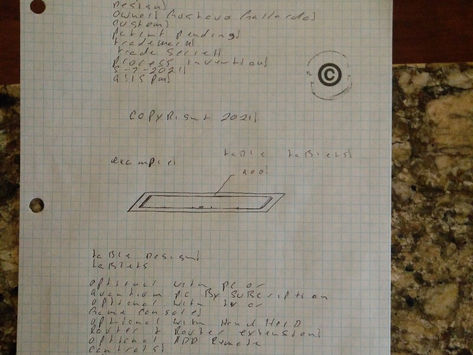 Design|
Owner| Gustavo Gallardo|
Custom|
Patent Pending|
Trademark|
Trade Secret|
Process Invention|
5-7-2021|
©
Copyright 2021|
Table Tablets|
example|
Table Design|
Tablets
optional with PC or
Quantum PC By Subscription
optional with TV or
Game Console|
optional with Hand Held
Router & Router extension|
optional ADD Remote
Controls|